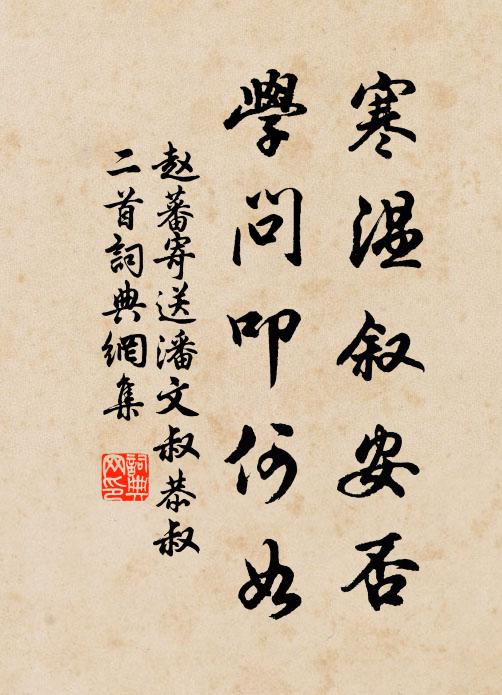 寒温叙安否
學問叩何如
赵蕃寄送潘文叔恭叔
二首詞典網集
詞典
网印